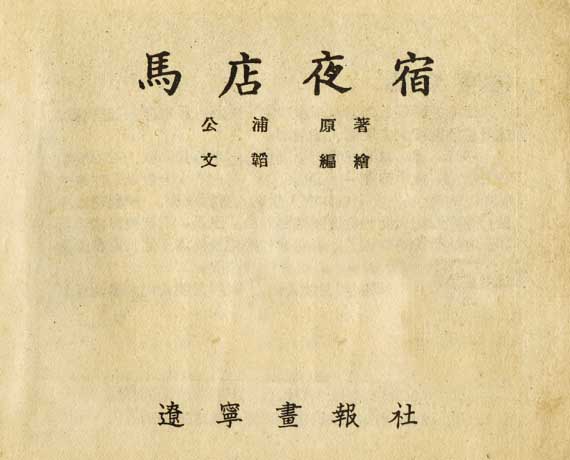 馬店夜宿
公浦 原著
文韜 編繪
遼寧畫報社